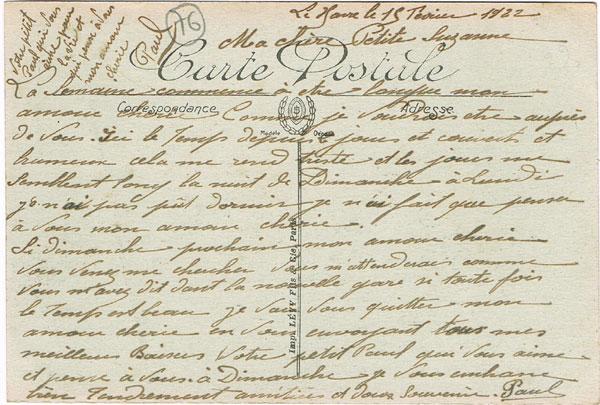 Le Havre le 15 Fevrier 1922
Ma chère Petite Suzanne
Carte Postale
La Semaine commence à être longue mon
Correspondance
Adresse
amour cherie Comme je voudrais etre auprès
Modèle Déposé
de Vous. Ici le Temps depuis jours et couvert et
humeux cela me rend triste et les jours me
Semblent long la nuit de Dimanche à Lundi
je n'ai pas pût dormir je n'ai fait que penser
à Vous mon amour cherie.
Si dimanche prochain mon amour cherie
Vous Venez me chercher Vous m'attenderais comme
Vous m'avez dit dans la nouvelle gare si toute fois
le Temps est beau je vais Vous quitter mon
amour cherie en Vous envoyant tous mes
meilleurs Baisers Votre petit Paul qui Vous aime
et pense à Vous à Dimanche je Vous embrasse
bien Tendrement amitiées et doux Souvenir Paul
Imp. LÉVY Fils & Cie, Paris
Votre petit
Paul qui Vous
aime pour
la Vie et
qui pense à Vous
mon amour
cherie
Paul
76